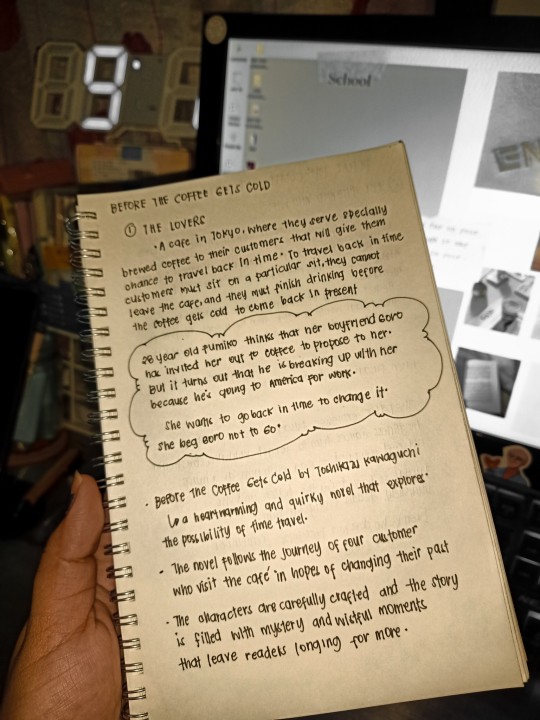 9
School
EN
BEFORE THE COFFEE GETS COLD
① THE LOVERS
• A cafe in Tokyo, where they serve specially
brewed coffee to their customers that will give them
chance to travel back in time. To travel back in time
customers must sit on a particular sit, they cannot
leave the cafe, and they must finish drinking before
the coffee gets cold to come back in present
28 year old Fumiko thinks that her boyfriend Goro
has invited her out to coffee to propose to her.
But it turns out that he is breaking up with her
because he's going to America for work.
She wants to go back in time to change it.
She beg Goro not to go.
• Before The Coffee Gets Cold by Toshikazu Kawaguchi
↳ a heartwarming and quirky novel that explores
the possibility of time travel.
• The novel follows the journey of four customer
who visit the café in hopes of changing their past
• The characters are carefully crafted and the story
is filled with mystery and wistful moments
that leave readers longing for more.